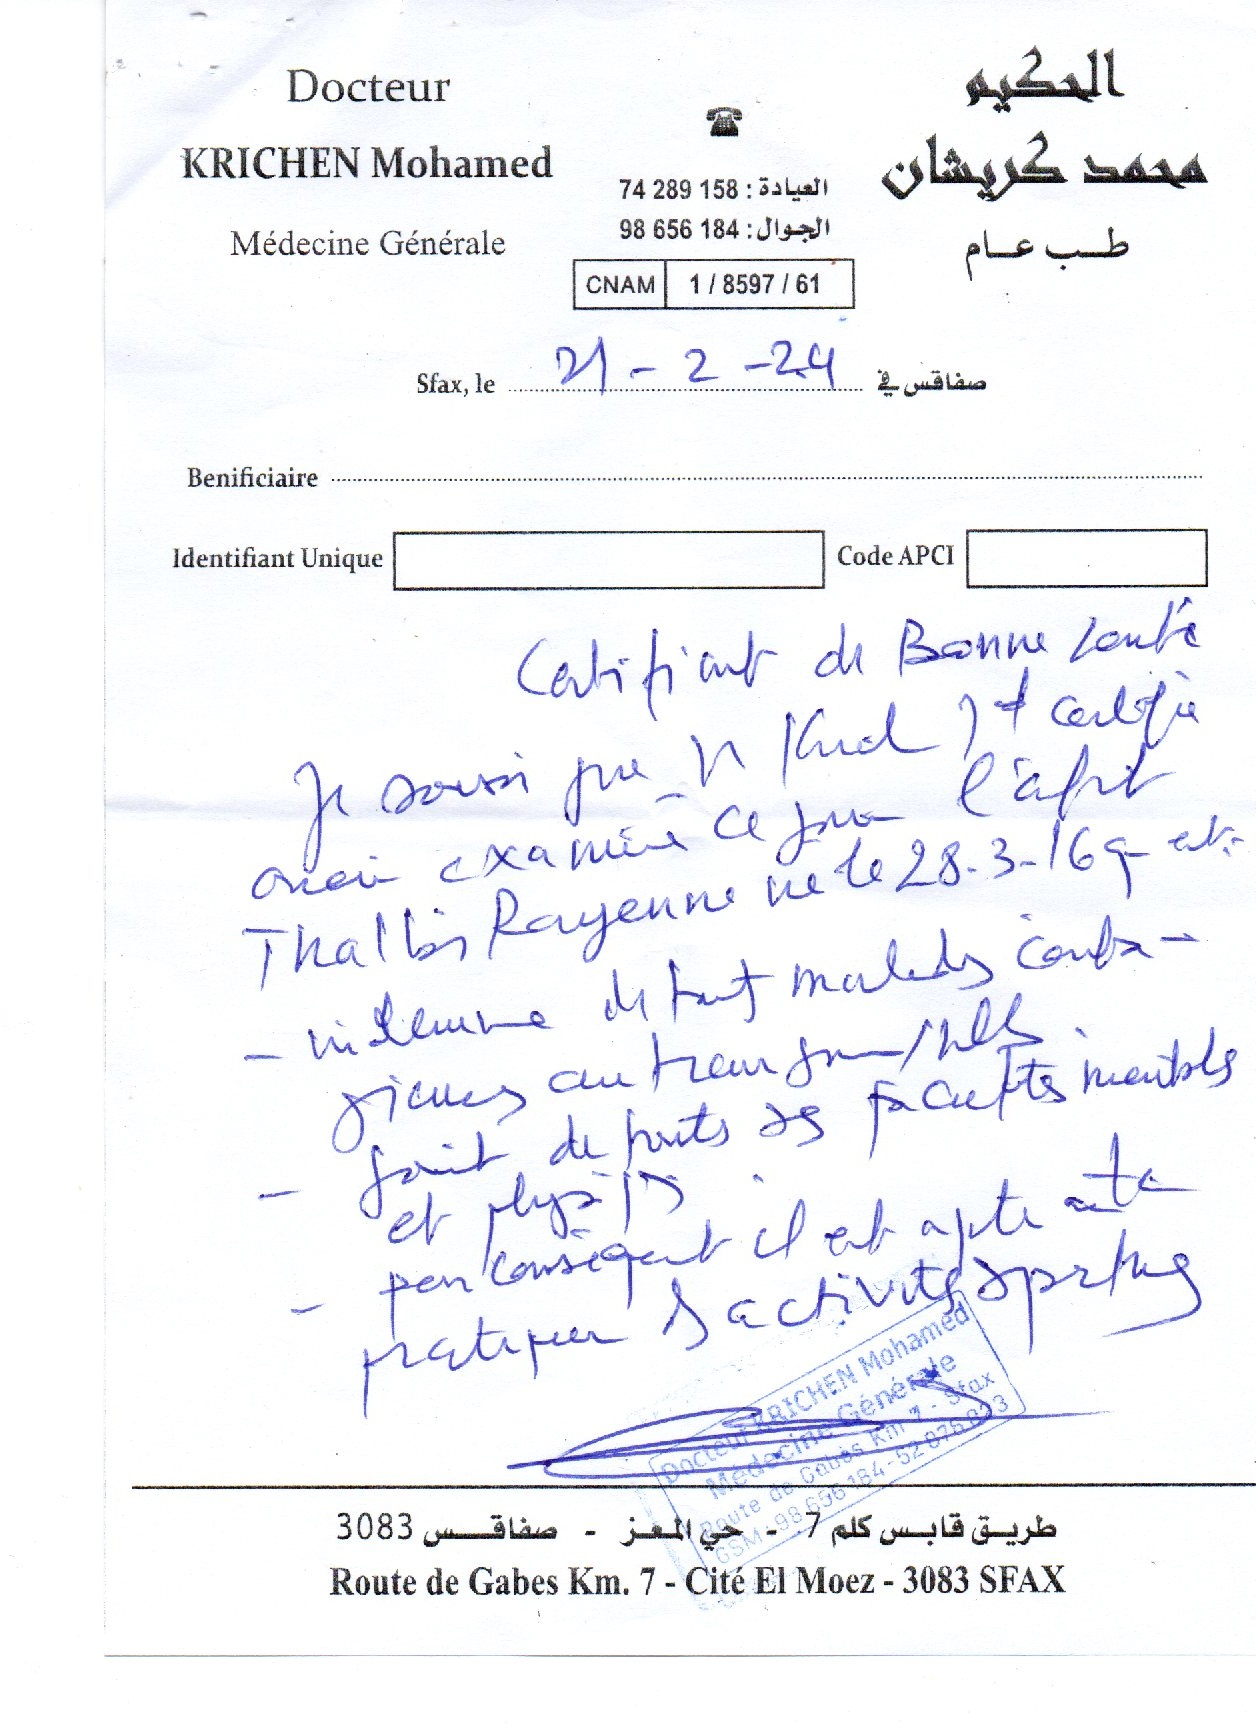 Docteur
KRICHEN Mohamed
Médecine Générale
العيادة : 158 289 74
الجوال : 184 656 98
CNAM 1 / 8597 / 61
الحكيم
محمد كريشان
طب عام
Sfax, le 21 - 2 - 24 صفاقس في
Benificiaire
Identifiant Unique Code APCI
Certificat de Bonne santé
Je soussigné certifie
avoir examiné ce jour l'enfant
Rayenne né le 28-3-16 q est
- indemne de tout maladies conta-
gieuses
- jouit de touts ses facultés mentals
et
- par conséquent il est apte
pratiquer activités sportives
Docteur KRICHEN Mohamed
Médecine Générale
Route de Gabès Km 7 - Sfax
GSM: 98 656 184 -
طريق قابس كلم 7 - حي المعز - صفاقس 3083
Route de Gabes Km. 7 - Cité El Moez - 3083 SFAX